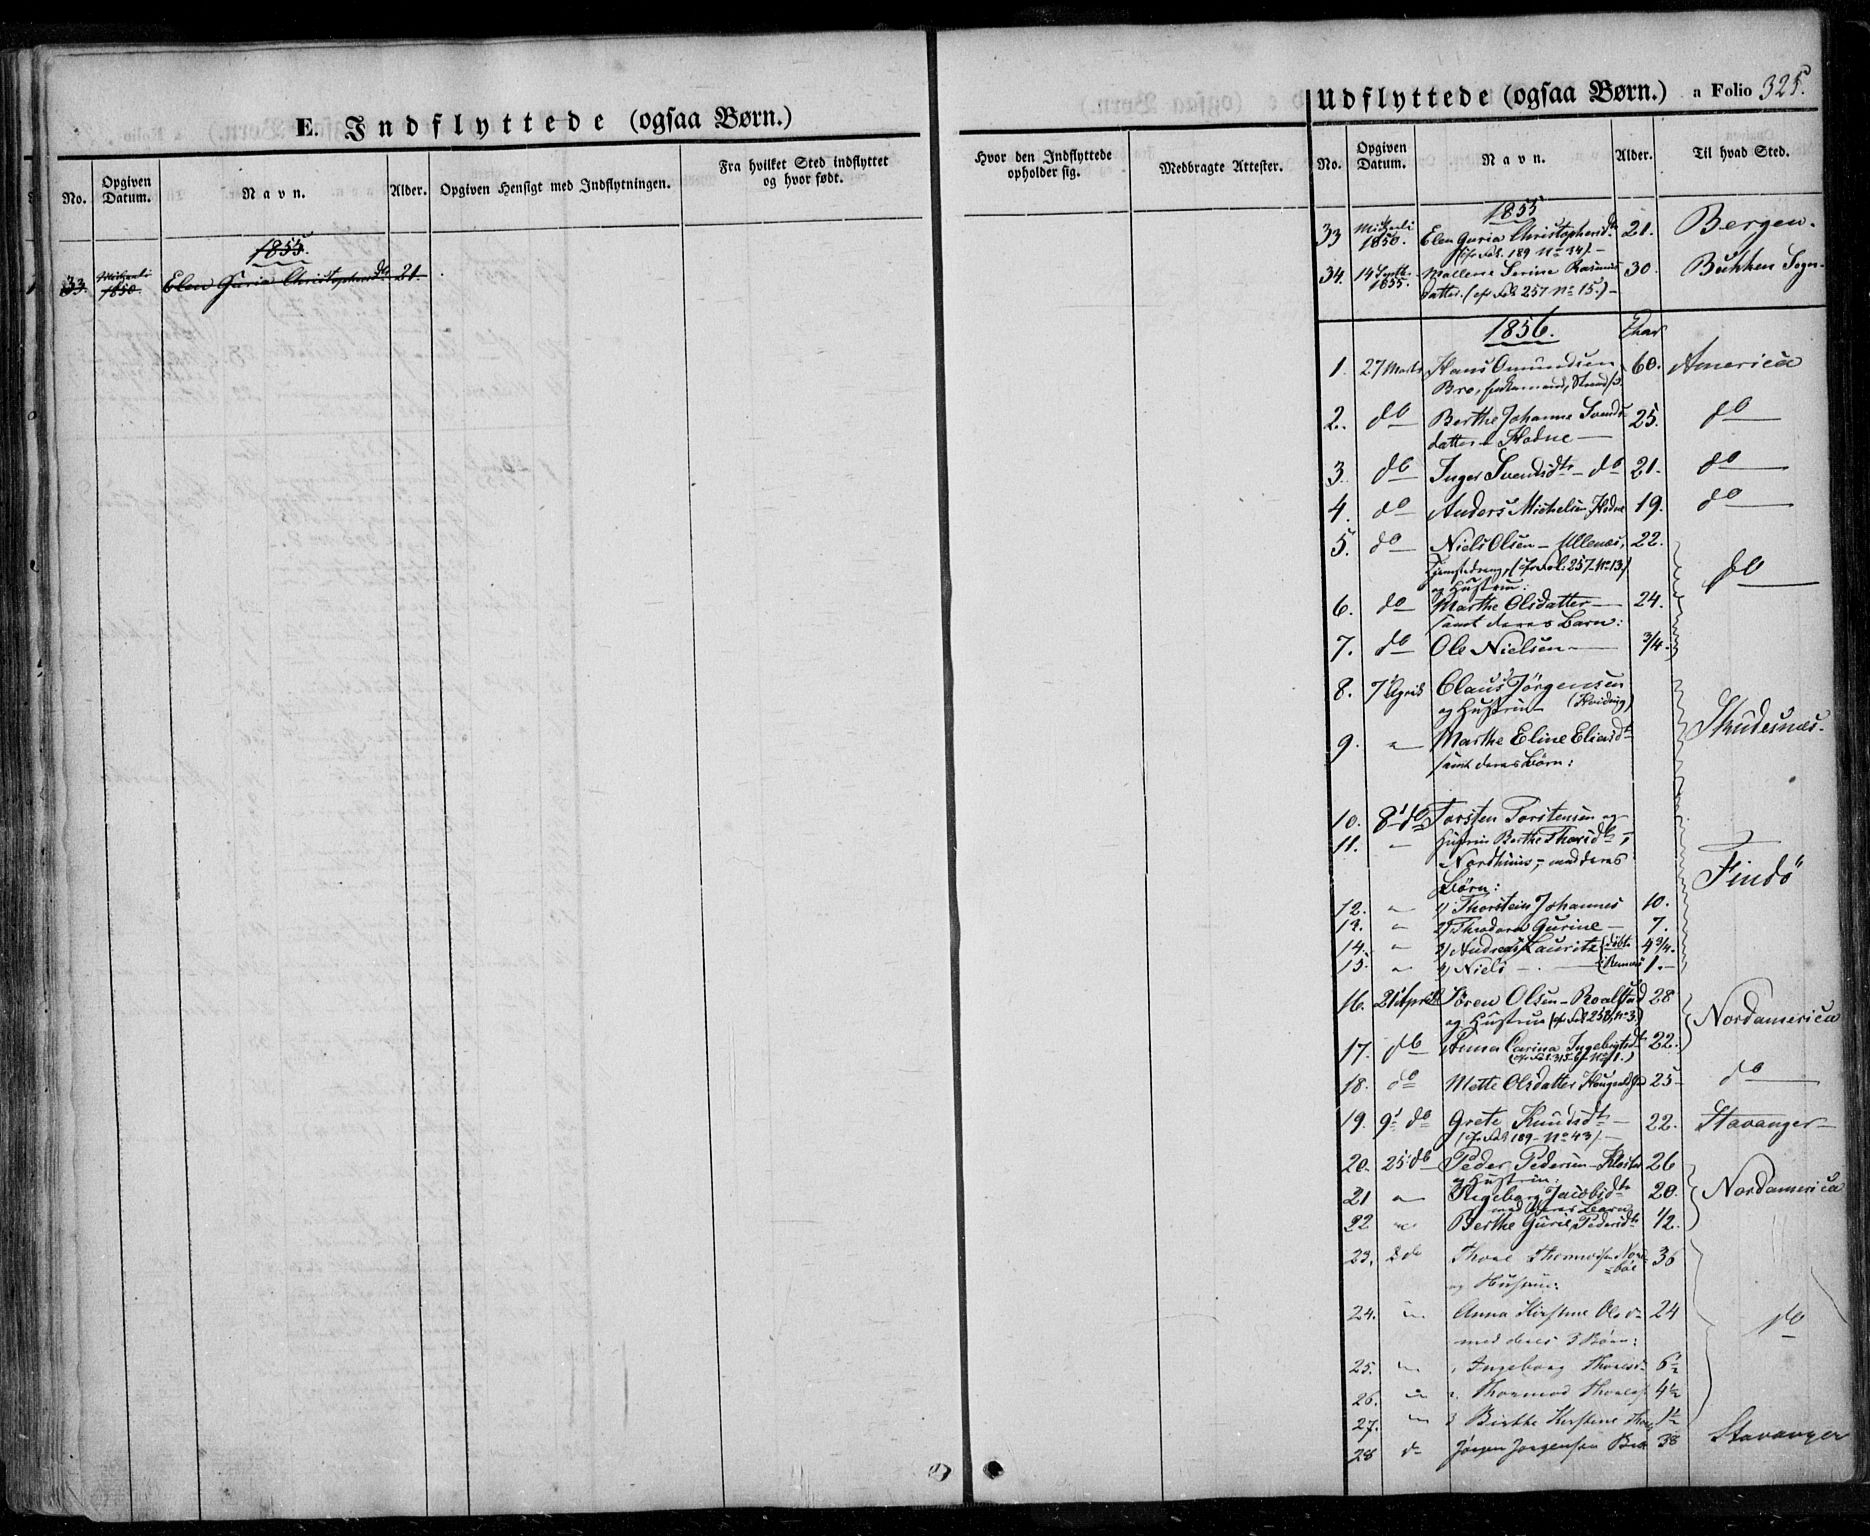 E. Indflyttede (ogsaa Børn.)
No. Opgiven Datum. Navn. Alder. Opgiven Hensigt med Indflytningen. Fra hvilket Sted indflyttet og hvor født.
Hvor den Indflyttede opholder sig. Medbragte Attester.
1855.
33. Michaeli 1850. Elen Guria Christophersd. 21.
Udflyttede (ogsaa Børn.) a Folio 325.
No. Opgiven Datum. Navn. Alder. Til hvad Sted.
1855
33 Michaeli 1850. Elen Guria Christophersdtr 21. Bergen.
(cfr Fol. 189 No 34) -
34. 14 Septbr 1855. Mallene Serine Rasmus 30. Bukken Sogn
datter. (cfr Fol 257 No 15.) -
1856.
1. 27 Marts Hans Omundsen 60. America
Bro,
2. do Berthe Johanne Svends 25. do
datter Hodne -
3. do Inger Svendsdtr - do 21. do
4. do Anders Michelsen Hodne 19. do
5. do Niels Olsen - Ullenæs, 22. do
(cfr Fol: 257 No 13)
og Hustrue:
6. do Marthe Olsdatter - 24.
samt deres Barn:
7. do Ole Nielsen - 3/4.
8. 7 April Claus Jørgensen
og Hustrue
9. " Marthe Eline Eliasdtr Skudesnæs.
samt deres Børn:
10. 8 do Torsten Torstensen og
11. " Hustru Berthe Thorsdtr,
Nordhuus, - med deres Findö
Börn:
12. " 1) Thorstein Johannes 10.
13. " 2) Theodora Gurine - 7.
14. " 3) Andreas Lauritz 4 3/4.
15. " 4) Niels - 1. -
16. 21 April Sören Olsen - Roalstad 28 Nordamerica
og Hustrue (cfr Fol 258, No 3.)
17. do Anna Carina Ingebrigtsdtr 22.
18. do Mette Olsdatter 25 do
19. 9 do Grete Knudsdtr - 22. Stavanger -
(cfr Fol 189 - No 43) -
20. 25 do Peder Pedersen - Kloster 26 Nordamerica
og Hustrue:
21 " Ingeborg Jacobsdtr 20.
med deres Barn
22 " Berthe Gurie Pedersdtr 1/2.
23. do Thore 36
og Hustrue:
24. " Anna Kirstine Olsd 24 do
med deres 3 Börn:
25. " 1, Ingeborg Thoresd 6 1/2
26. " 2. Thormod Thores 4 1/2
27. " 3 Birthe Kirstine Thor 1 1/2
28 do Jörgen Jörgensen 38 Stavanger